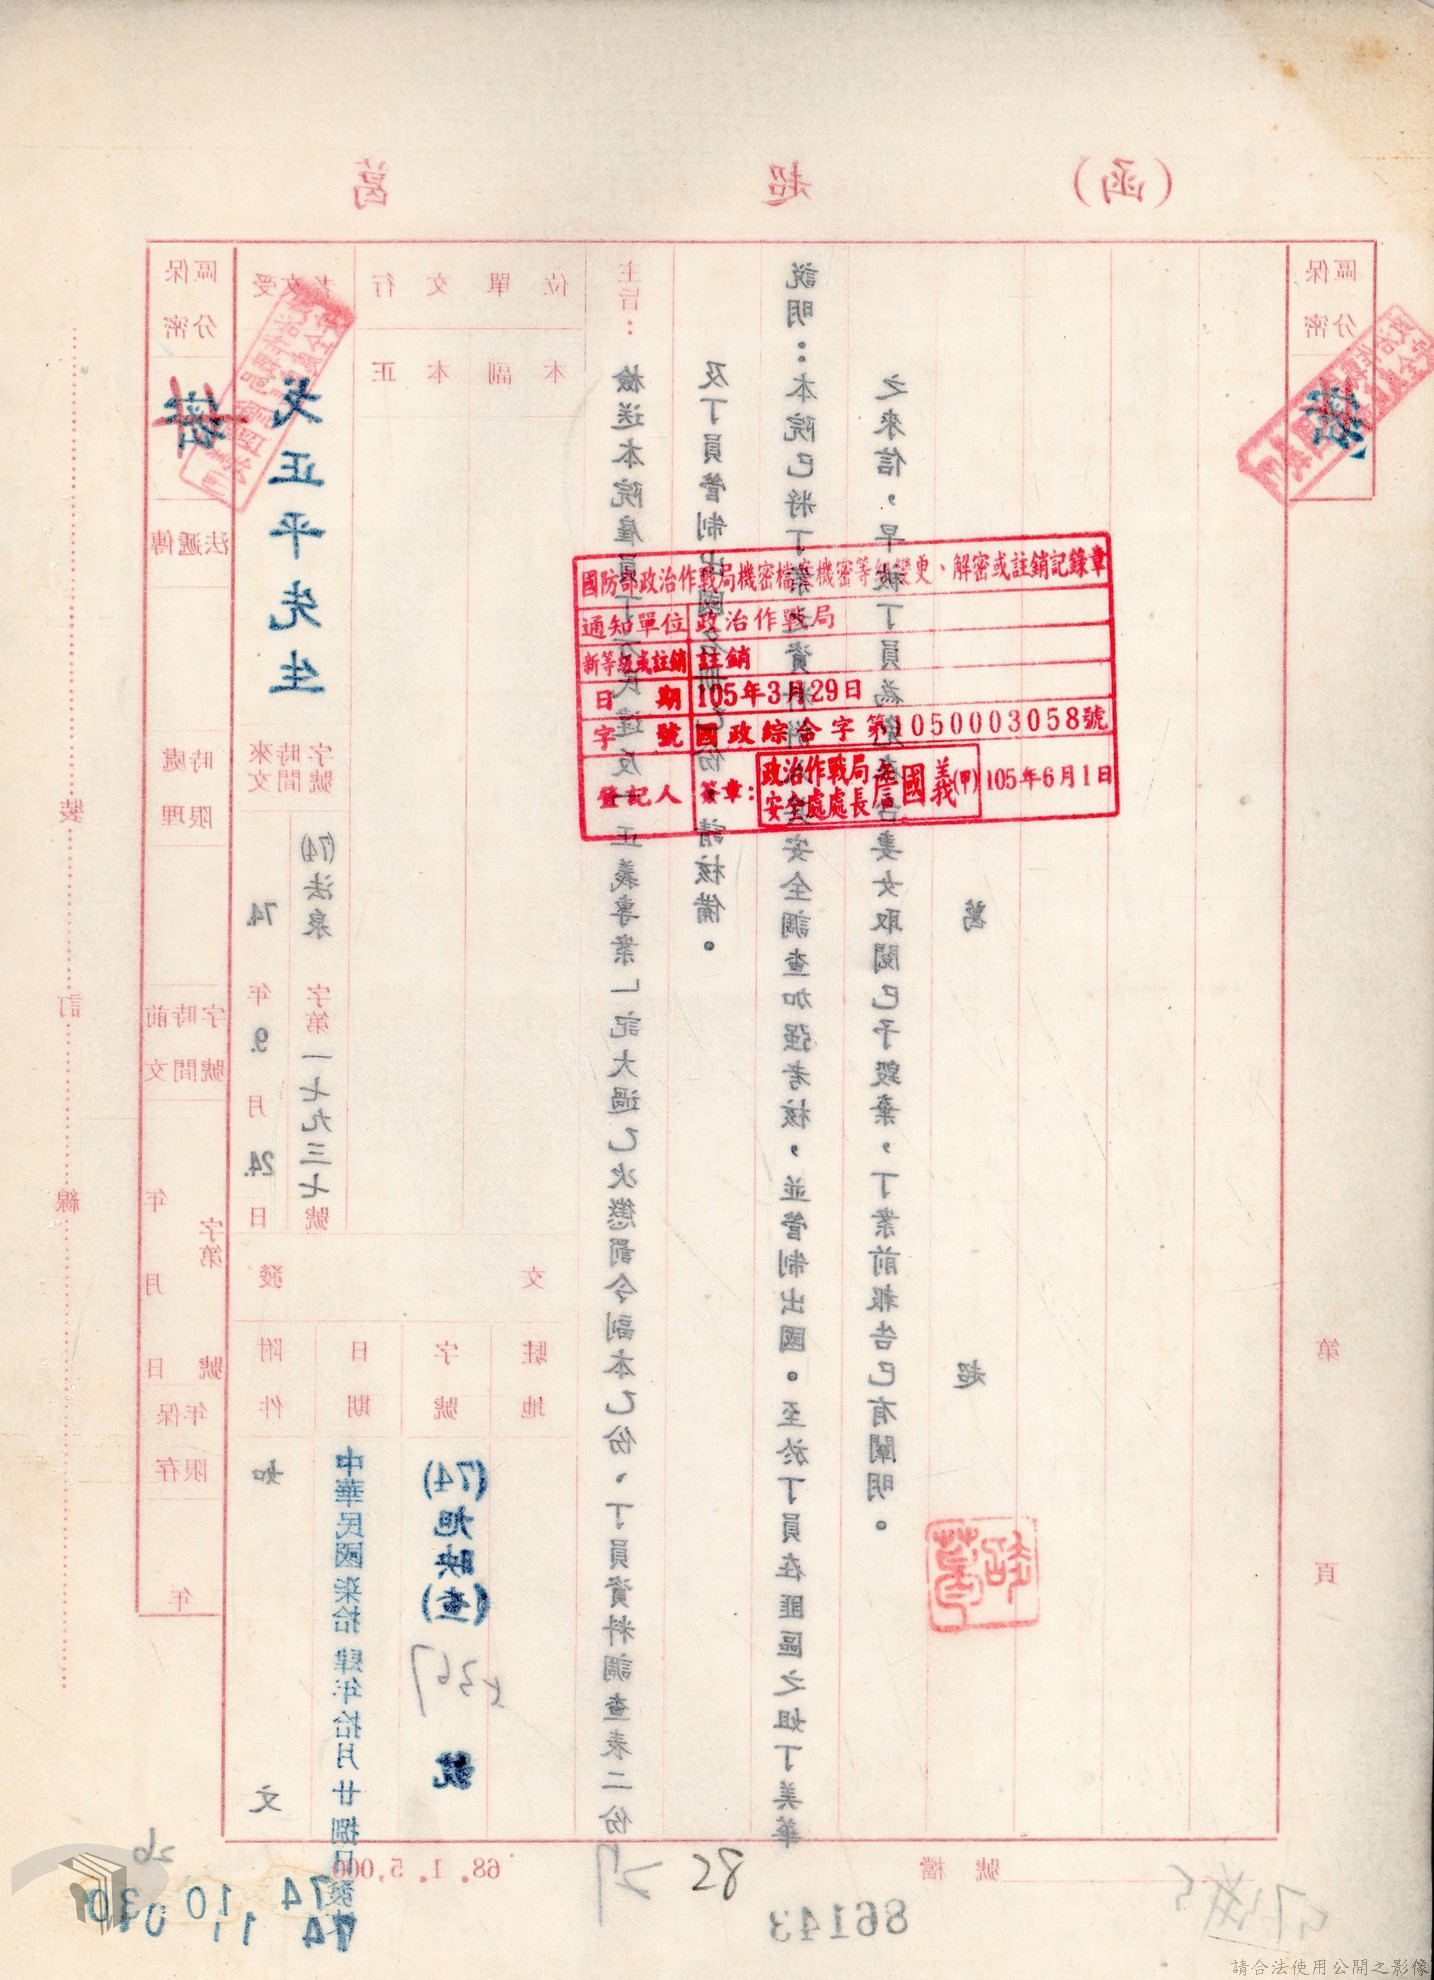 萬　超　（函）
保密區分
密
傳遞法
處理時限
前文時間字號
年　月　日
字第　號
保存年限
年
裝　訂　線
受文者
戈正平先生
行文單位
正本　副本
來文時間字號
74.年9.月24.日
(74)法泉字第一七九三七號
發文
附件
如文
日期
中華民國柒拾肆年拾月廿捌日
字號
(74)旭映(查)　號
駐地
主旨：檢送本院雇員丁　民違反「正義專案」記大過乙次懲罰令副本乙份、丁員資料調查表二份
及丁員管制出國名冊乙份，請核備。
說明：本院已將丁案　資料　安全調查加强考核，並管制出國。至於丁員在匪區之姐丁美華
之來信，早被丁員為　妻女取閱已予毀棄，丁案前報告已有闡明。
萬　超
保密區分
密
第　頁
國防部政治作戰局機密檔案機密等級變更、解密或註銷記錄章
通知單位 政治作戰局
新等級或註銷 註銷
日期 105年3月29日
字號 國政綜合字第1050003058號
登記人 簽章：政治作戰局安全處處長詹國義(甲) 105年6月1日
68. 1. 5,000
檔號
28
86143
74 10 30
74 1 1 04
請合法使用公開之影像